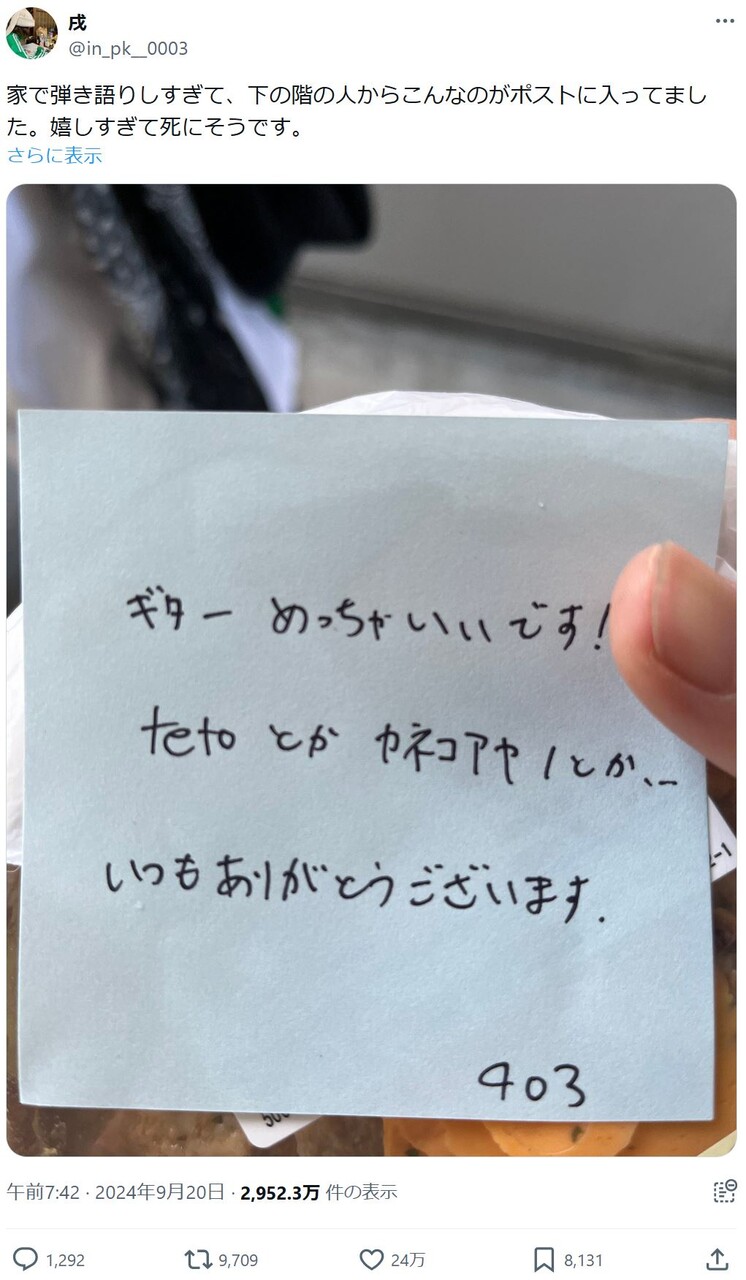 戌
@in_pk__0003
家で弾き語りしすぎて、下の階の人からこんなのがポストに入ってまし
た。嬉しすぎて死にそうです。
さらに表示
ギター めっちゃいいです!
teto とか カネコアヤノとか、、
いつもありがとうございます.
403
午前7:42 · 2024年9月20日 · 2,952.3万 件の表示
1,292
9,709
24万
8,131